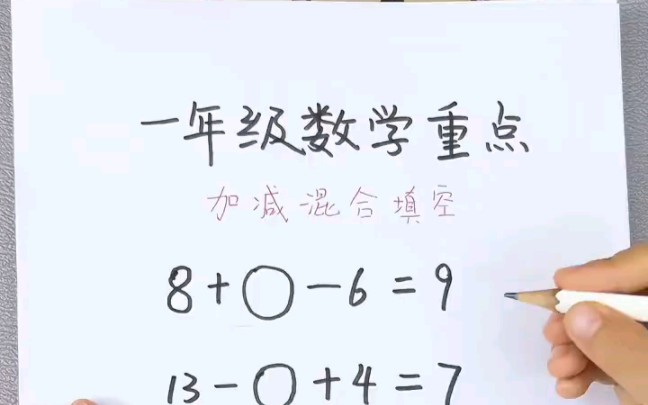 一年级数学重点
加减混合填空
8+○-6=9
13-○+4=7